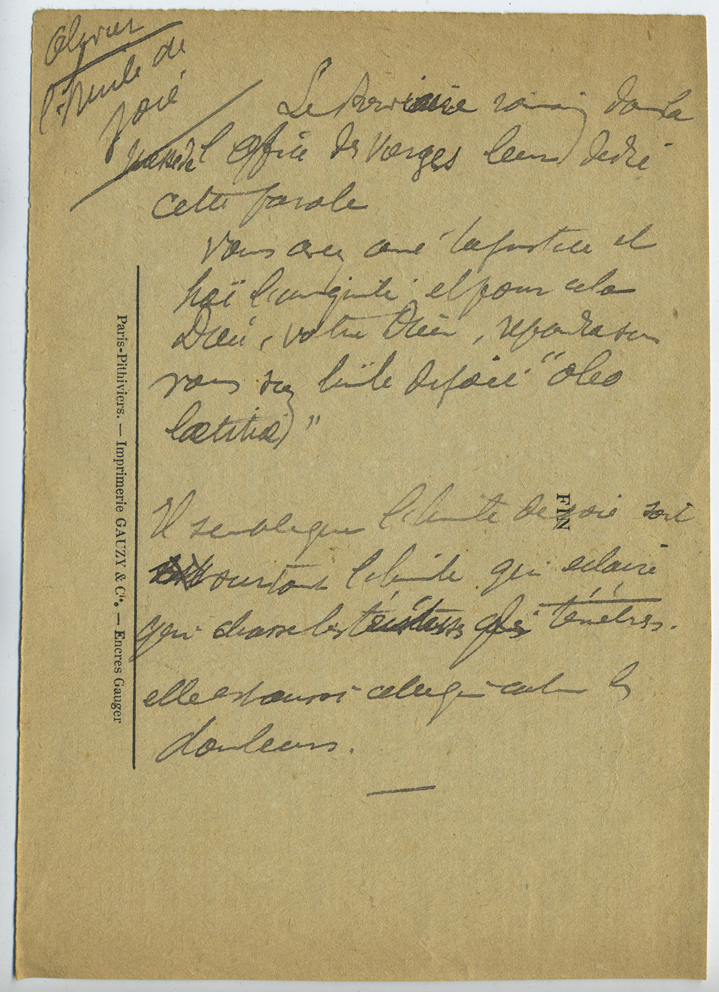 Olivier
l'Huile de
joie
Le Breviaire romain dans la
l'office des Vierges leur dedie
cette parole
Vous avez aimé la justice et
haï l'iniquité et pour cela
Dieu, votre Dieu, repandra sur
vous son huile de joie "oleo
laetitiae)"
Il semble que l'huile de joie soit
surtout l'huile qui eclaire
qui chasse les ténèbres.
elle est aussi celle qui calme les
douleurs.
FIN
Paris-Pithiviers. — Imprimerie GAUZY & Cie. — Encres Gauger